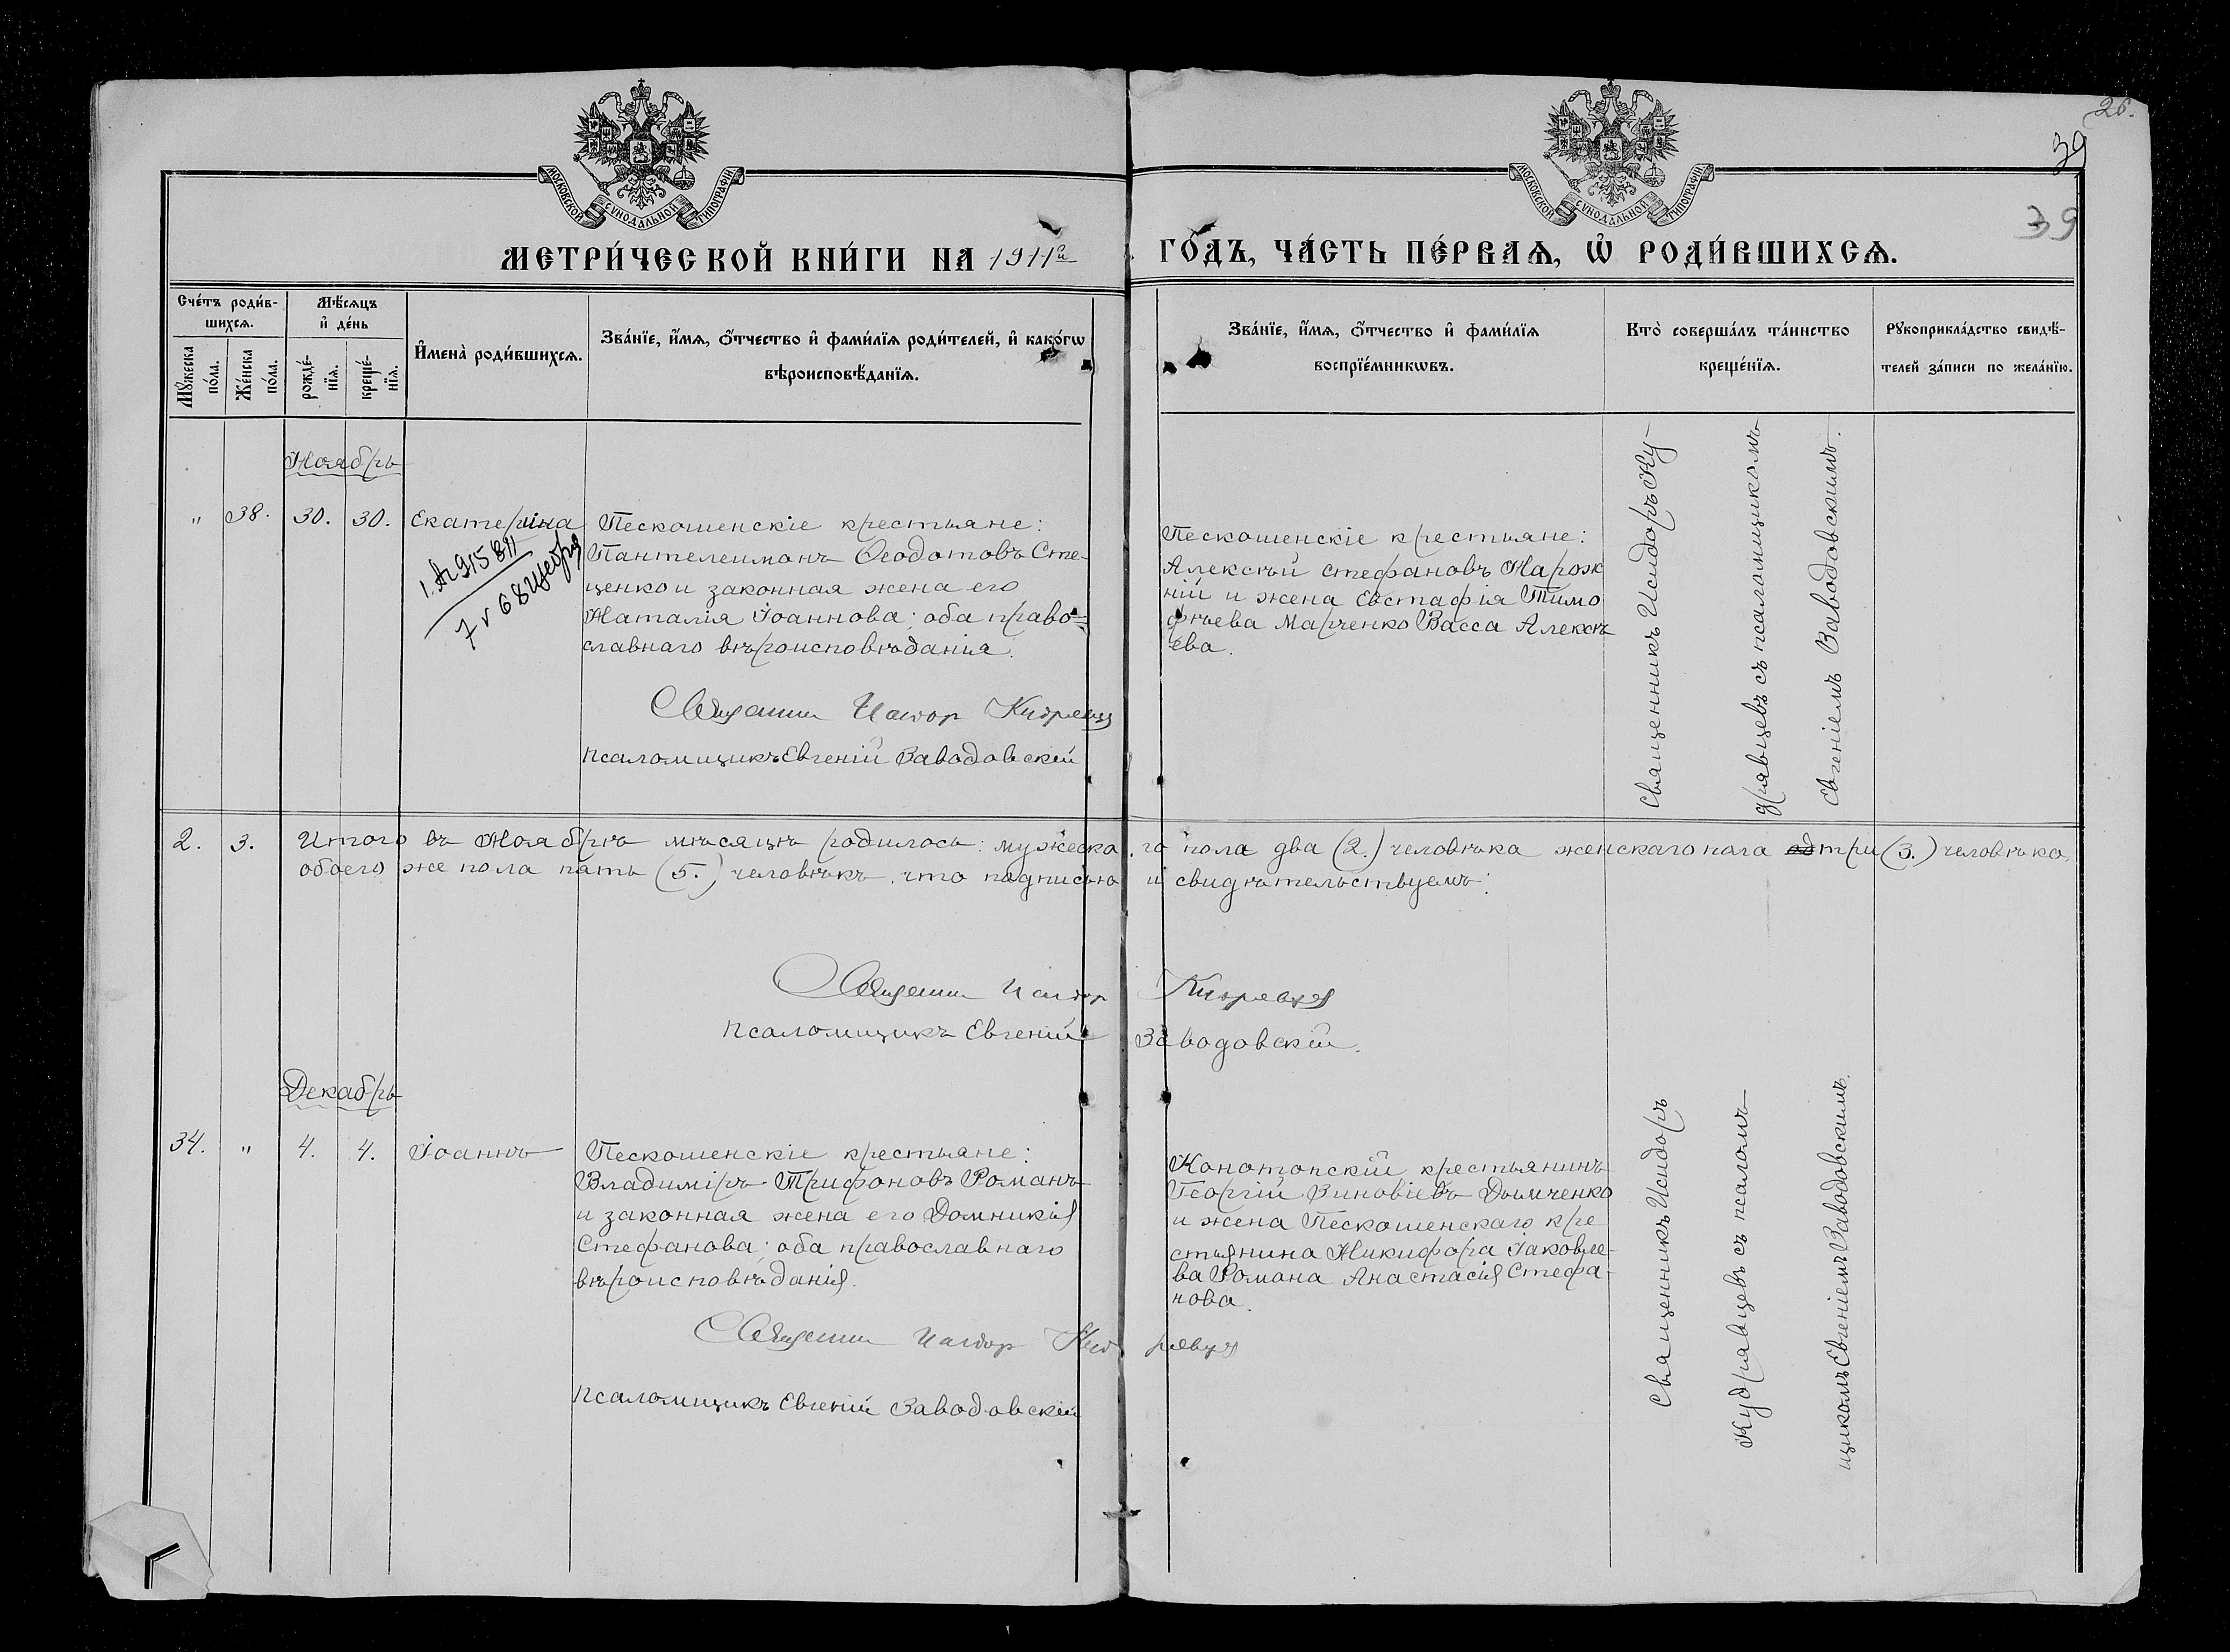 26.
39
39
МОСКОВСКОЙ СѴНОДАЛЬНОЙ ТИПОГРАФІИ
МОСКОВСКОЙ СѴНОДАЛЬНОЙ ТИПОГРАФІИ
МЕТРИ́ЧЕСКОЙ КНИ́ГИ НА 1911й ГО́ДЪ, ЧА́СТЬ ПЕ́РВАѦ, Ѡ҆ РОДИ́ВШИХСѦ.
Сче́тъ роди́в-
шихсѧ.
Мꙋ́жеска
по́ла.
Же́нска
по́ла.
Мѣ́сѧцъ
и҆ де́нь
рожде́-
нїѧ.
креще́-
нїѧ.
И҆мена̀ роди́вшихсѧ.
Зва́нїе, и҆́мѧ, ѻ҆́тчество и҆ фами́лїѧ роди́телей, и҆ како́гѡ
вѣроисповѣ́данїѧ.
Зва́нїе, и҆́мѧ, ѻ҆́тчество и҆ фами́лїѧ
воспрїе́мникѡвъ.
Кто̀ соверша́лъ та́инство
креще́нїѧ.
Рꙋкоприкла́дство свидѣ́-
телей за́писи по жела́нїю.
Ноябрь
" 38. 30. 30. Екатерина
Пескошенскіе крестьяне:
Пантелеимонъ Ѳеодотовъ Сте-
ценко и законная жена его
Наталія Іоаннова; оба право=
славнаго вѣроисповѣданія.
Священник Исидор Кудрявцев
Псаломщикъ Евгеній Заводовскій
Пескошенскіе крестьяне:
Алексѣй Стефановъ Нарож
ній и жена Евстафія Тимо
ѳѣева Марченко Васса Алексѣ
ева.
Священникъ Исидоръ Ку-
дрявцевъ съ псаломщикомъ
Евгеніемъ Заводовскимъ.
2. 3. Итого въ Ноябрѣ мѣсяцѣ родилось: мужескаго пола два (2.) человѣка женскаго пола три (3.) человѣка,
обоего же пола пять (5.) человѣкъ, что подписью и свидѣтельствуемъ:
Священник Исидор Кудрявцев
Псаломщикъ Евгеній Заводовскій.
Декабрь
34. " 4. 4. Іоаннъ
Пескошенскіе крестьяне:
Владиміръ Трифоновъ Романъ
и законная жена его Домникія
Стефанова; оба православнаго
вѣроисповѣданія.
Священник Исидор Кудрявцев
Псаломщикъ Евгеній Заводовскій
Конотопскій крестьянинъ
Георгій Зиновіевъ Дымченко
и жена Пескошенскаго кре
стьянина Никифора Іаковле-
ва Романа Анастасія Стефа-
нова.
Священникъ Исидоръ
Кудрявцевъ съ псалом-
щикомъ Евгеніемъ Заводовскимъ.